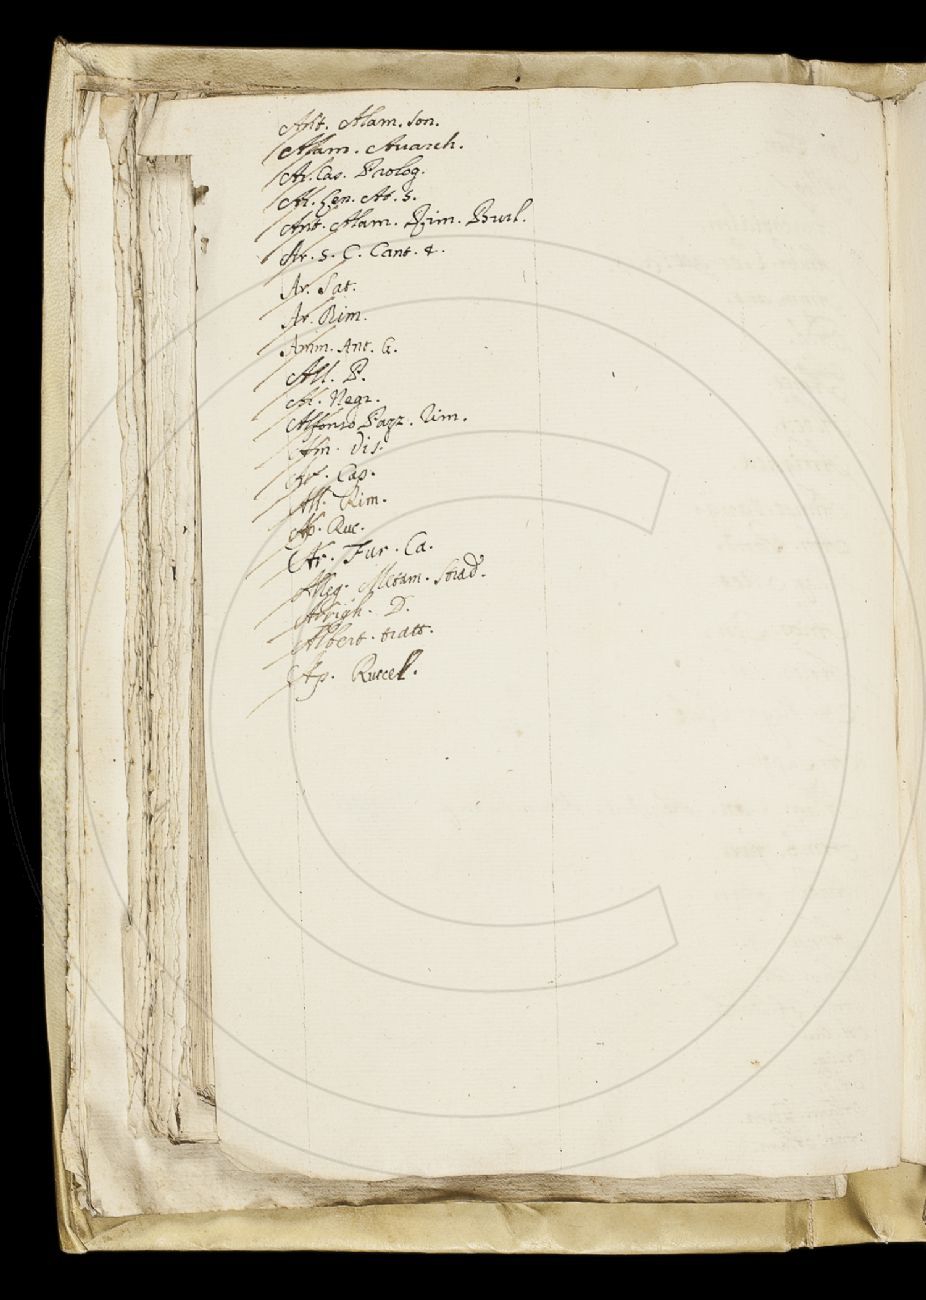 Ant. Alam. son.
Alam. Avarch.
Ar. Cas. Prolog.
Al. Gen. At. 5.
Ant. Alam. Rim. Burl.
Ar. S. C. Cant. 4.
Ar. Sat.
Ar. Rim.
Amm. Ant. G.
All. P.
Ar. Negr.
Alfonso Pazz. Rim.
Am. Dis.
Ar. Cap.
All. Rim.
Ap. Ruc.
Ar. Fur. Ca.
Alleg. Metam. Strad.
Arrigh. D.
Albert. tratt.
Ap. Rucel.